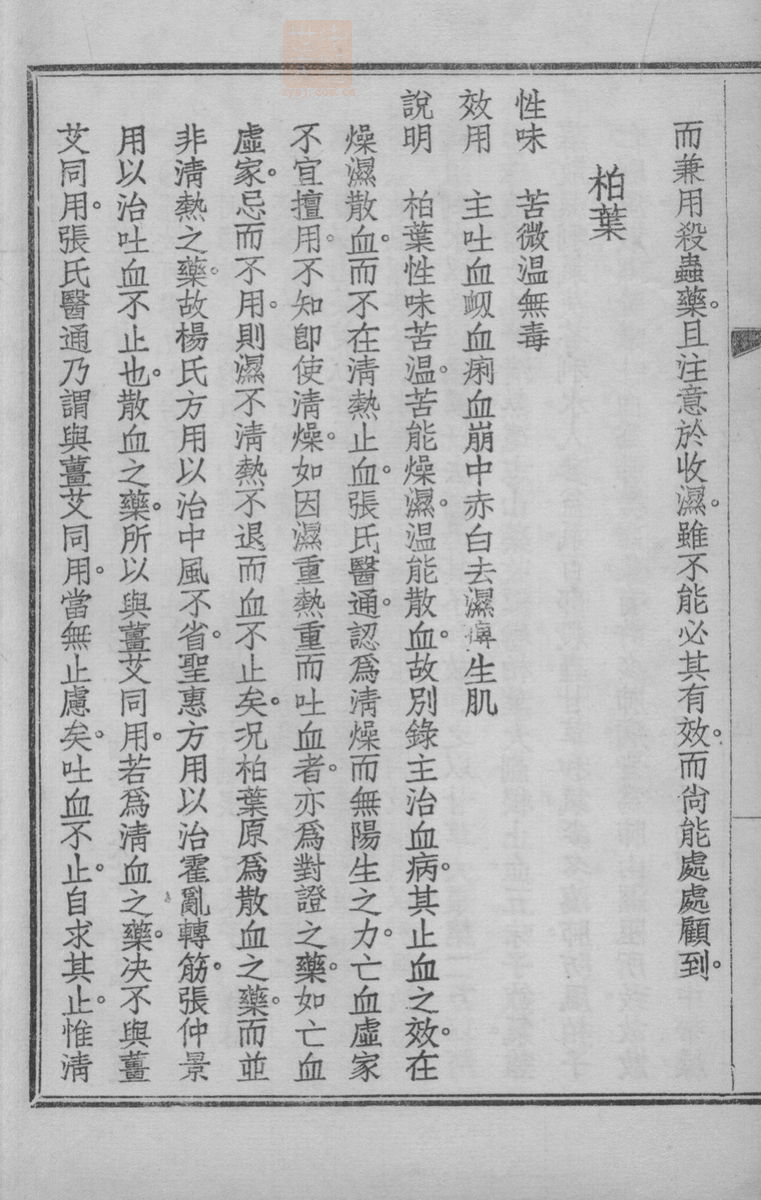 而兼用殺蟲藥。且注意於收濕。雖不能必其有效。而尙能處處顧到。
柏葉
性味　苦微温無毒
效用　主吐血衄血痢血崩中赤白去濕痺生肌
說明　柏葉性味苦温。苦能燥濕。温能散血。故別錄主治血病。其止血之效。在
燥濕散血。而不在清熱止血。張氏醫通。認爲清燥而無陽生之力。亡血虛家
不宜擅用。不知卽使清燥。如因濕重熱重而吐血者。亦爲對證之藥。如亡血
虛家。忌而不用。則濕不清熱不退而血不止矣。况柏葉原爲散血之藥。而並
非清熱之藥。故楊氏方用以治中風不省。聖惠方用以治霍亂轉筋。張仲景
用以治吐血不止也。散血之藥。所以與薑艾同用。若爲清血之藥。决不與薑
艾同用。張氏醫通乃謂與薑艾同用。當無止慮矣。吐血不止。自求其止。惟清